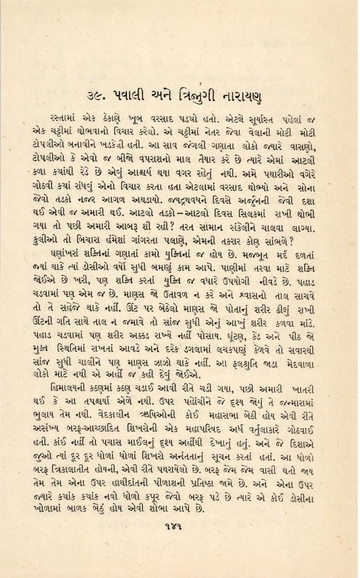 ૩૯. પવાલી અને ત્રિજુગી નારાયણ
રસ્તામાં એક ઠેકાણે ખૂબ વરસાદ પડ્યો હતો. એટલે સૂર્યાસ્ત પહેલાં જ
એક ચટ્ટીમાં થોભવાનો વિચાર કરેલો. એ ચટ્ટીમાં નેતર જેવા વેલાની મોટી મોટી
ટોપલીઓ બનાવીને ખડકેલી હતી. આ સાવ જંગલી ગણાતા લોકો જ્યારે વાસણો,
ટોપલીઓ કે એવો જ બીજો વપરાશનો માલ તૈયાર કરે છે ત્યારે એમાં આટલી
કળા ક્યાંથી રેડે છે એવું આશ્ચર્ય થયા વગર રહેતું નથી. અમે પથારીઓ વગેરે
ગોઠવી ક્યાં રાંધવું એનો વિચાર કરતા હતા એટલામાં વરસાદ થોભ્યો અને સોના
જેવો તડકો નજર આગળ અથડાયો. જયદ્રથવધને દિવસે અર્જુનની જેવી દશા
થઈ એવી જ અમારી થઈ. આટલો તડકો—આટલો દિવસ સિલકમાં રાખી થોભી
ગયા તો પછી અમારી આબરૂ શી રહી? તરત સામાન સંકેલીને ચાલવા લાગ્યા.
કુલીઓ તો બિચારા હંમેશાં ગાંગરતા પલાણે, એમની તકરાર કોણ સાંભળે?
ઘણાંખરાં શક્તિનાં ગણાતાં કામો યુક્તિનાં જ હોય છે. મજબૂત મર્દ દળતાં
જ્યાં થાકે ત્યાં ડોસીઓ વર્ષો સુધી બમણું કામ આપે. પાણીમાં તરવા માટે શક્તિ
જોઈએ છે ખરી, પણ શક્તિ કરતાં યુક્તિ જ વધારે ઉપયોગી નીવડે છે. પહાડ
ચડવામાં પણ એમ જ છે. માણસ જો ઉતાવળ ન કરે અને શ્વાસનો તાલ સાચવે
તો તે સહેજે થાકે નહીં. ઊંટ પર બેઠેલો માણસ જો પોતાનું શરીર ઢીલું રાખી
ઊંટની ગતિ સાથે તાલ ન જમાવે તો સાંજ સુધી એનું આખું શરીર કળવા માંડે.
પહાડ ચડવામાં પણ શરીર અક્કડ રાખ્યે નહીં પોસાય. ઘૂંટણ, કેડ અને પીઠ જો
મુક્ત સ્થિતિમાં રાખતાં આવડે અને દરેક ડગલામાં લચકપણું કેળવે તો સવારથી
સાંજ સુધી ચાલીને પણ માણસ ઝાઝો થાકે નહીં. આ ફલશ્રુતિ જાડા મેદવાળા
લોકો માટે નથી એ અહીં જ કહી દેવું જોઈએ.
હિમાલયની કઠણમાં કઠણ ચડાઈ આવી રીતે ચડી ગયા, પછી અમારી ખાતરી
થઈ કે આ તપશ્ચર્યા એળે નથી. ઉપર પહોંચીને જે દૃશ્ય જોયું તે જન્મારામાં
ભુલાય તેમ નથી. વેદકાલીન ઋષિઓની કોઈ મહાસભા બેઠી હોય એવી રીતે
અસંખ્ય બરફ-આચ્છાદિત શિખરોની એક મહાપરિષદ અર્ધ વર્તુલાકારે ગોઠવાઈ
હતી. કાંઈ નહીં તો પચાસ માઈલનું દૃશ્ય અહીંથી દેખાતું હતું. અને જે દિશાએ
જુઓ ત્યાં દૂર દૂર ધોળાં ધોળાં શિખરો અનંતતાનું સૂચન કરતાં હતાં. આ ધોળો
બરફ ત્રિકાલાતીત હોયની, એવી રીતે પથરાયેલો છે. બરફ જેમ જેમ વાસી થતો જાય
તેમ તેમ એના ઉપર હાથીદાંતની પીળાશની પ્રતિષ્ઠા જામે છે. અને એના ઉપર
જ્યારે ક્યાંક ક્યાંક નવો ધોળો કપૂર જેવો બરફ પડે છે ત્યારે એ કોઈ ડોસીના
ખોળામાં બાળક બેઠું હોય એવી શોભા આપે છે.
૧૪૧